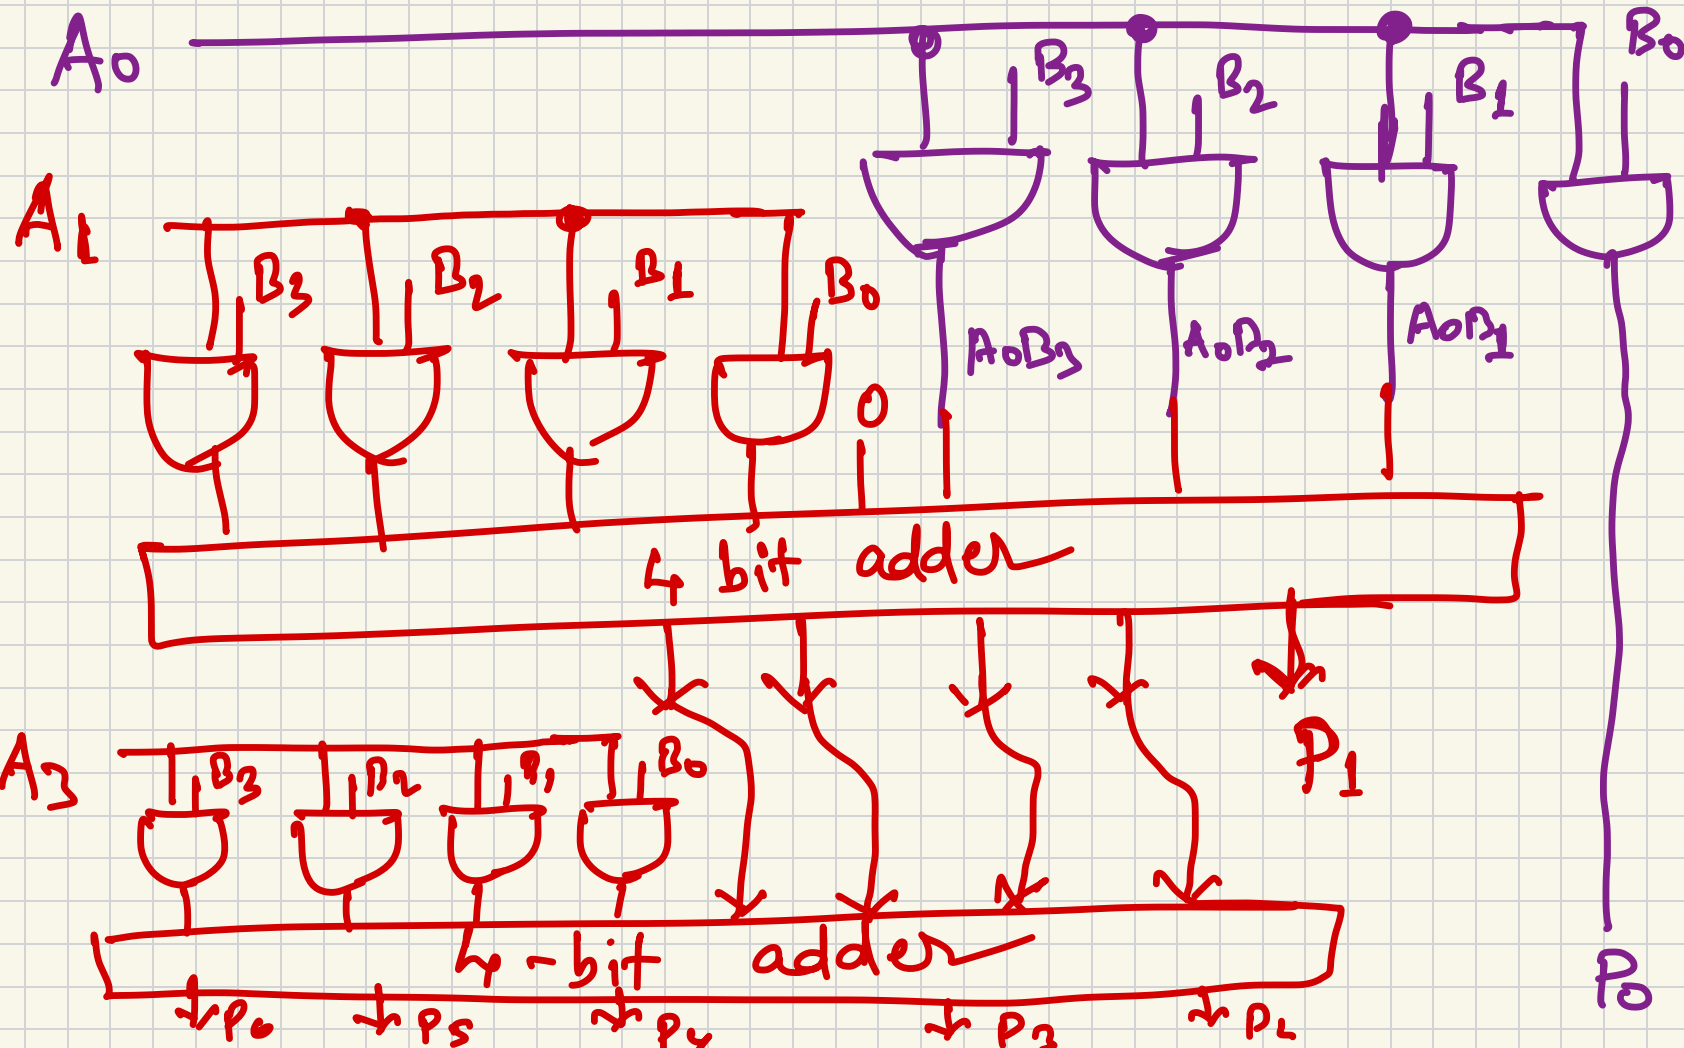 A0
B3 B2 B1 B0
A1
B3 B2 B1 B0
0
A0B3 A0B2 A0B1
4 bit adder
P1
A3
B3 B2 B1 B0
4-bit adder
P0
P6 P5 P4 P3 P2